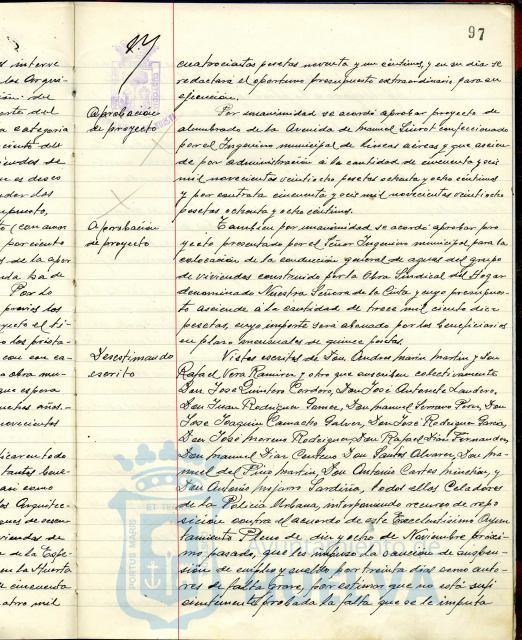 97
47
cuatrocientas pesetas noventa y un céntimos, y en su dia se
redactará el oportuno presupuesto extraordinario para su
ejecución.
Aprobación
de proyecto
Por unanimidad se acordó aprobar proyecto de
alumbrado de la Avenida de Manuel Siurot confeccionado
por el Ingeniero municipal de lineas aéreas y que ascien-
de por administración á la cantidad de cincuenta y seis
mil novecientos veintiocho pesetas ochenta y ocho céntimos
y por contrata cincuenta y seis mil novecientos veintiocho
pesetas ochenta y ocho céntimos.
Aprobación
de proyecto
Tambien por unanimidad se acordó aprobar pro-
yecto presentado por el Señor Ingeniero municipal para la
colocación de la conducción general de aguas del grupo
de viviendas construido por la Obra Sindical del Hogar
denominado Nuestra Señora de la Cinta y cuyo presupues-
to asciende á la cantidad de trece mil ciento diez
pesetas, cuyo importe será abonado por los beneficiarios
en plazo mensuales de quince pesetas.
Desestimando
escrito
Vistos escritos de Don Andres Marin Martin y Don
Rafael Vera Ramirez y otro que suscriben colectivamente
Don José Quintero Cordero, Don José Antonete Landero,
Don Juan Rodriguez Gomez, Don Manuel Serrano Perez, Don
José Joaquin Camacho Galvez, Don José Rodriguez Garcia,
Don José Moreno Rodriguez, Don Rafael Diaz Fernandez,
Don Manuel Diaz Centeno, Don Santos Alvarez, Don Ma-
nuel del Pino Martin, Don Antonio Cortes y
Don Antonio Mojarro Sardiña, todos ellos Celadores
de la Policia Urbana, interponiendo recurso de repo-
sición contra el acuerdo de este Excelentisimo Ayun-
tamiento Pleno de diez y ocho de Noviembre próxi-
mo pasado, que les impuso la sanción de suspen-
sión de empleo y sueldo por treinta dias como auto-
res de falta grave, por estimar que no está sufi-
cientemente probada la falta que se le imputa
PORTUS MARIS ET TERRAE
Ayuntamiento de